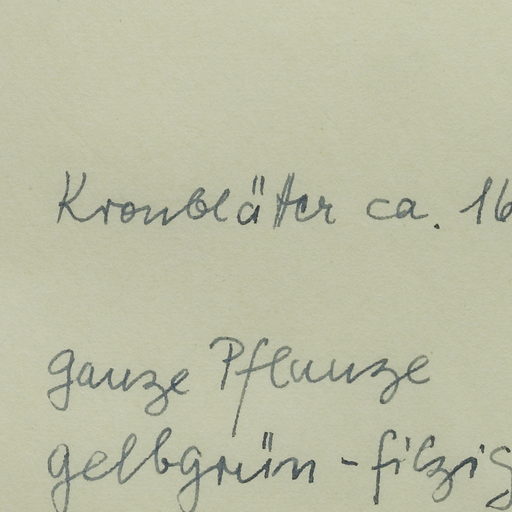 Kronblätter ca. 16
ganze Pflanze
gelbgrün - filzig